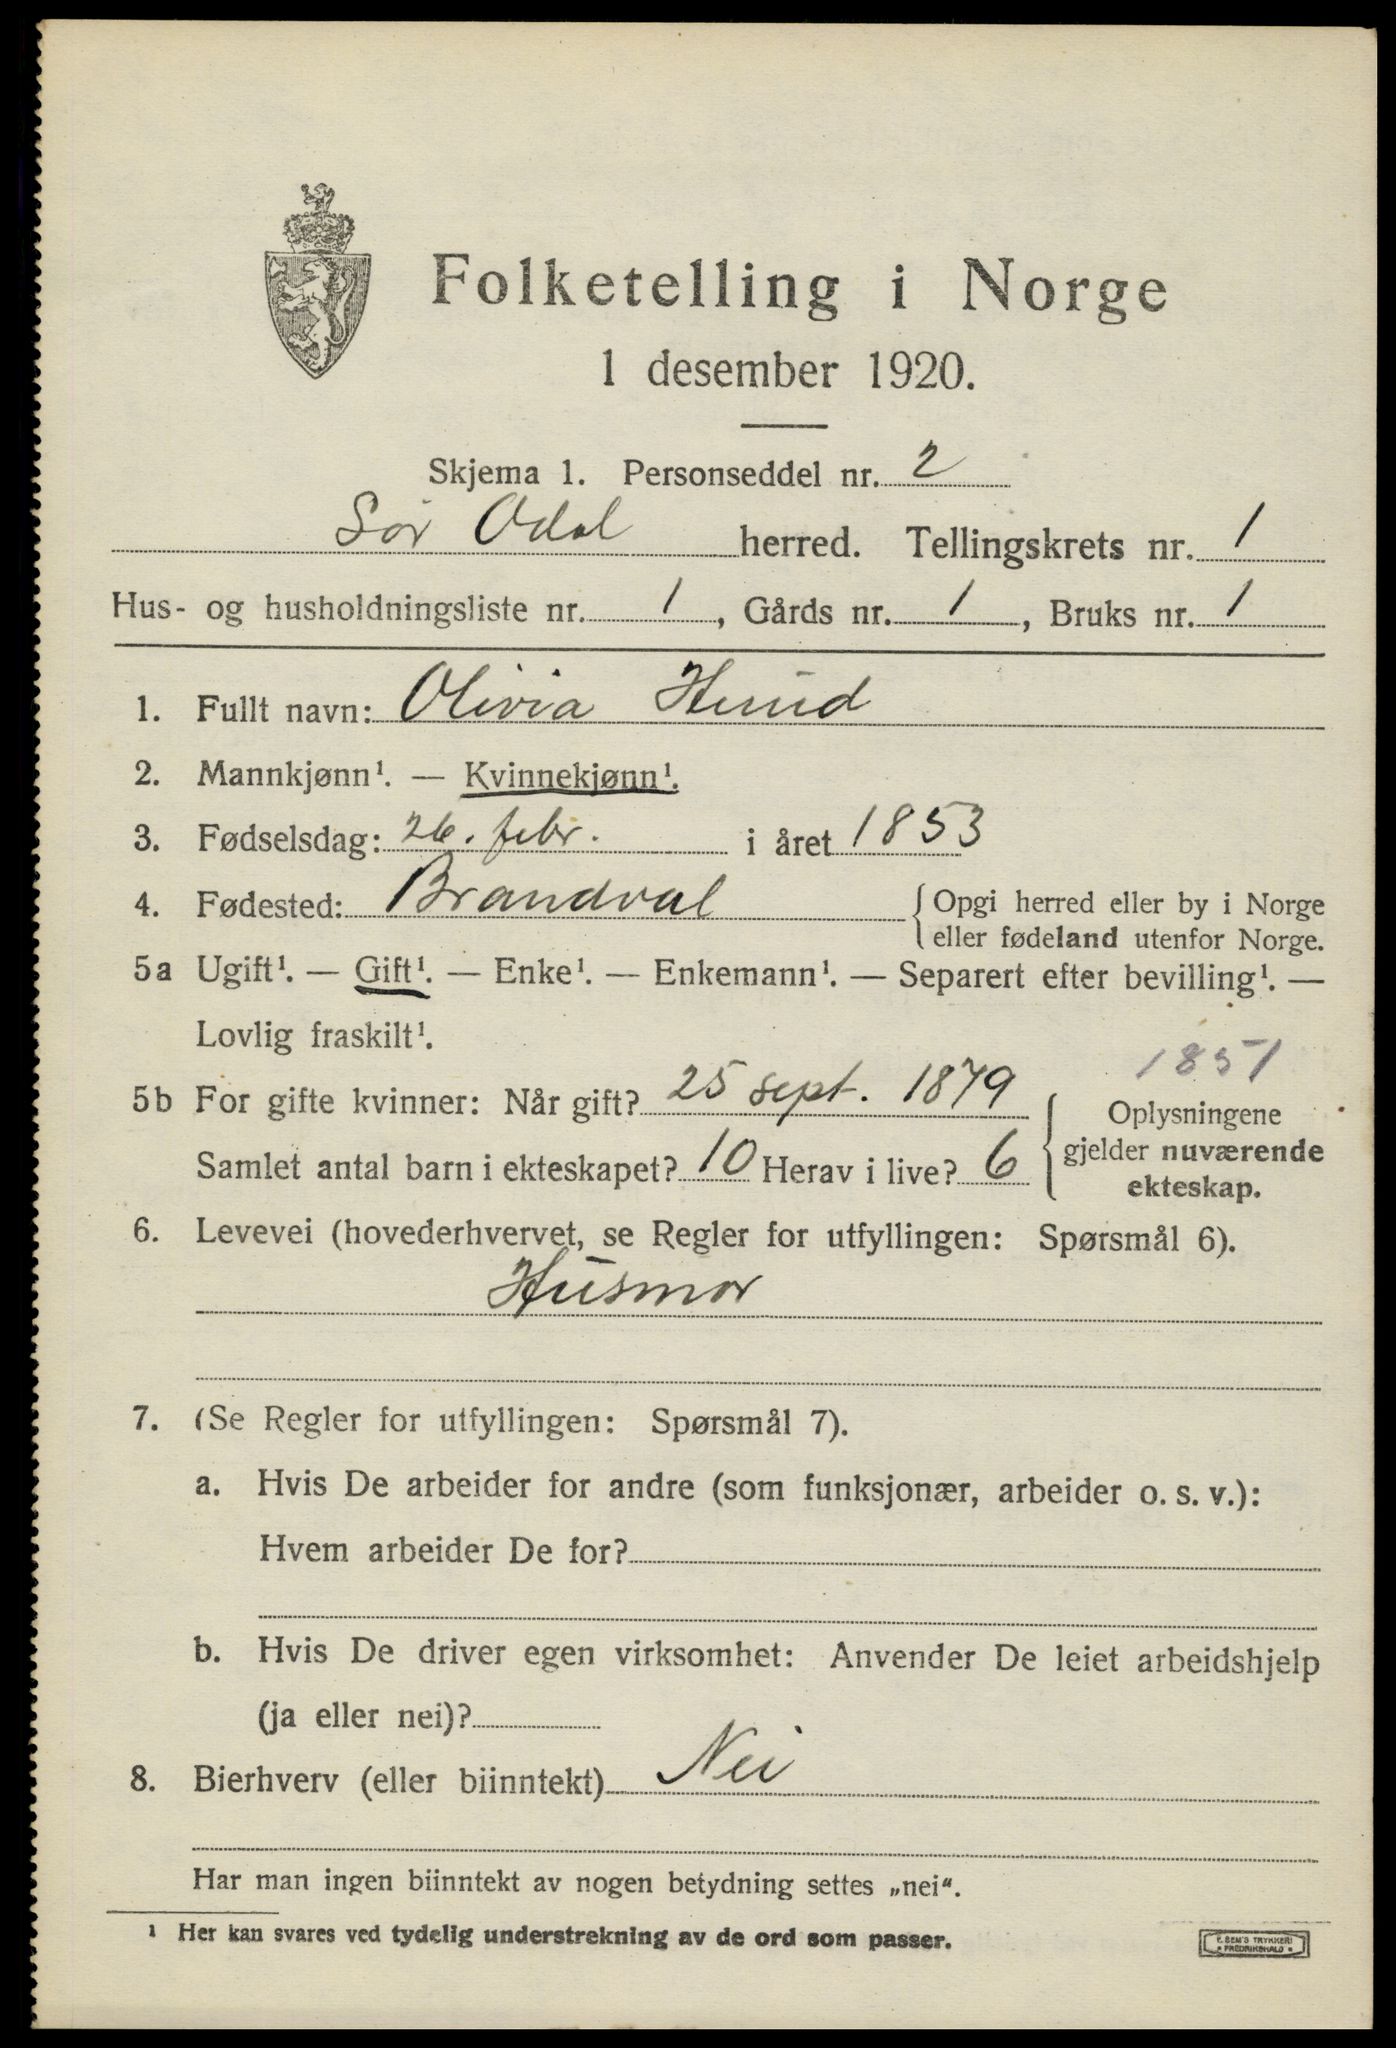 Folketelling i Norge
1 desember 1920.
Skjema 1. Personseddel nr. 2
Sør Odal herred. Tellingskrets nr. 1
Hus- og husholdningsliste nr. 1, Gårds nr. 1, Bruks nr. 1
1. Fullt navn: Olivia
2. Mannkjønn¹. — Kvinnekjønn¹.
3. Fødselsdag: 26. febr. i året 1853
4. Fødested: Brandval {Opgi herred eller by i Norge
eller fødeland utenfor Norge.
5a Ugift¹. — Gift¹. — Enke¹. — Enkemann¹. — Separert efter bevilling¹. —
Lovlig fraskilt¹.
1851
5b For gifte kvinner: Når gift? 25 sept. 1879
Samlet antal barn i ekteskapet? 10 Herav i live? 6
Oplysningene
gjelder nuværende
ekteskap.
6. Levevei (hovederhvervet, se Regler for utfyllingen: Spørsmål 6).
Husmor
7. (Se Regler for utfyllingen: Spørsmål 7).
a. Hvis De arbeider for andre (som funksjonær, arbeider o. s. v.):
Hvem arbeider De for?
b. Hvis De driver egen virksomhet: Anvender De leiet arbeidshjelp
(ja eller nei)?
8. Bierhverv (eller biinntekt) Nei
Har man ingen biinntekt av nogen betydning settes „nei“.
¹ Her kan svares ved tydelig understrekning av de ord som passer.
E. SEM'S TRYKKERI
FREDRIKSHALD